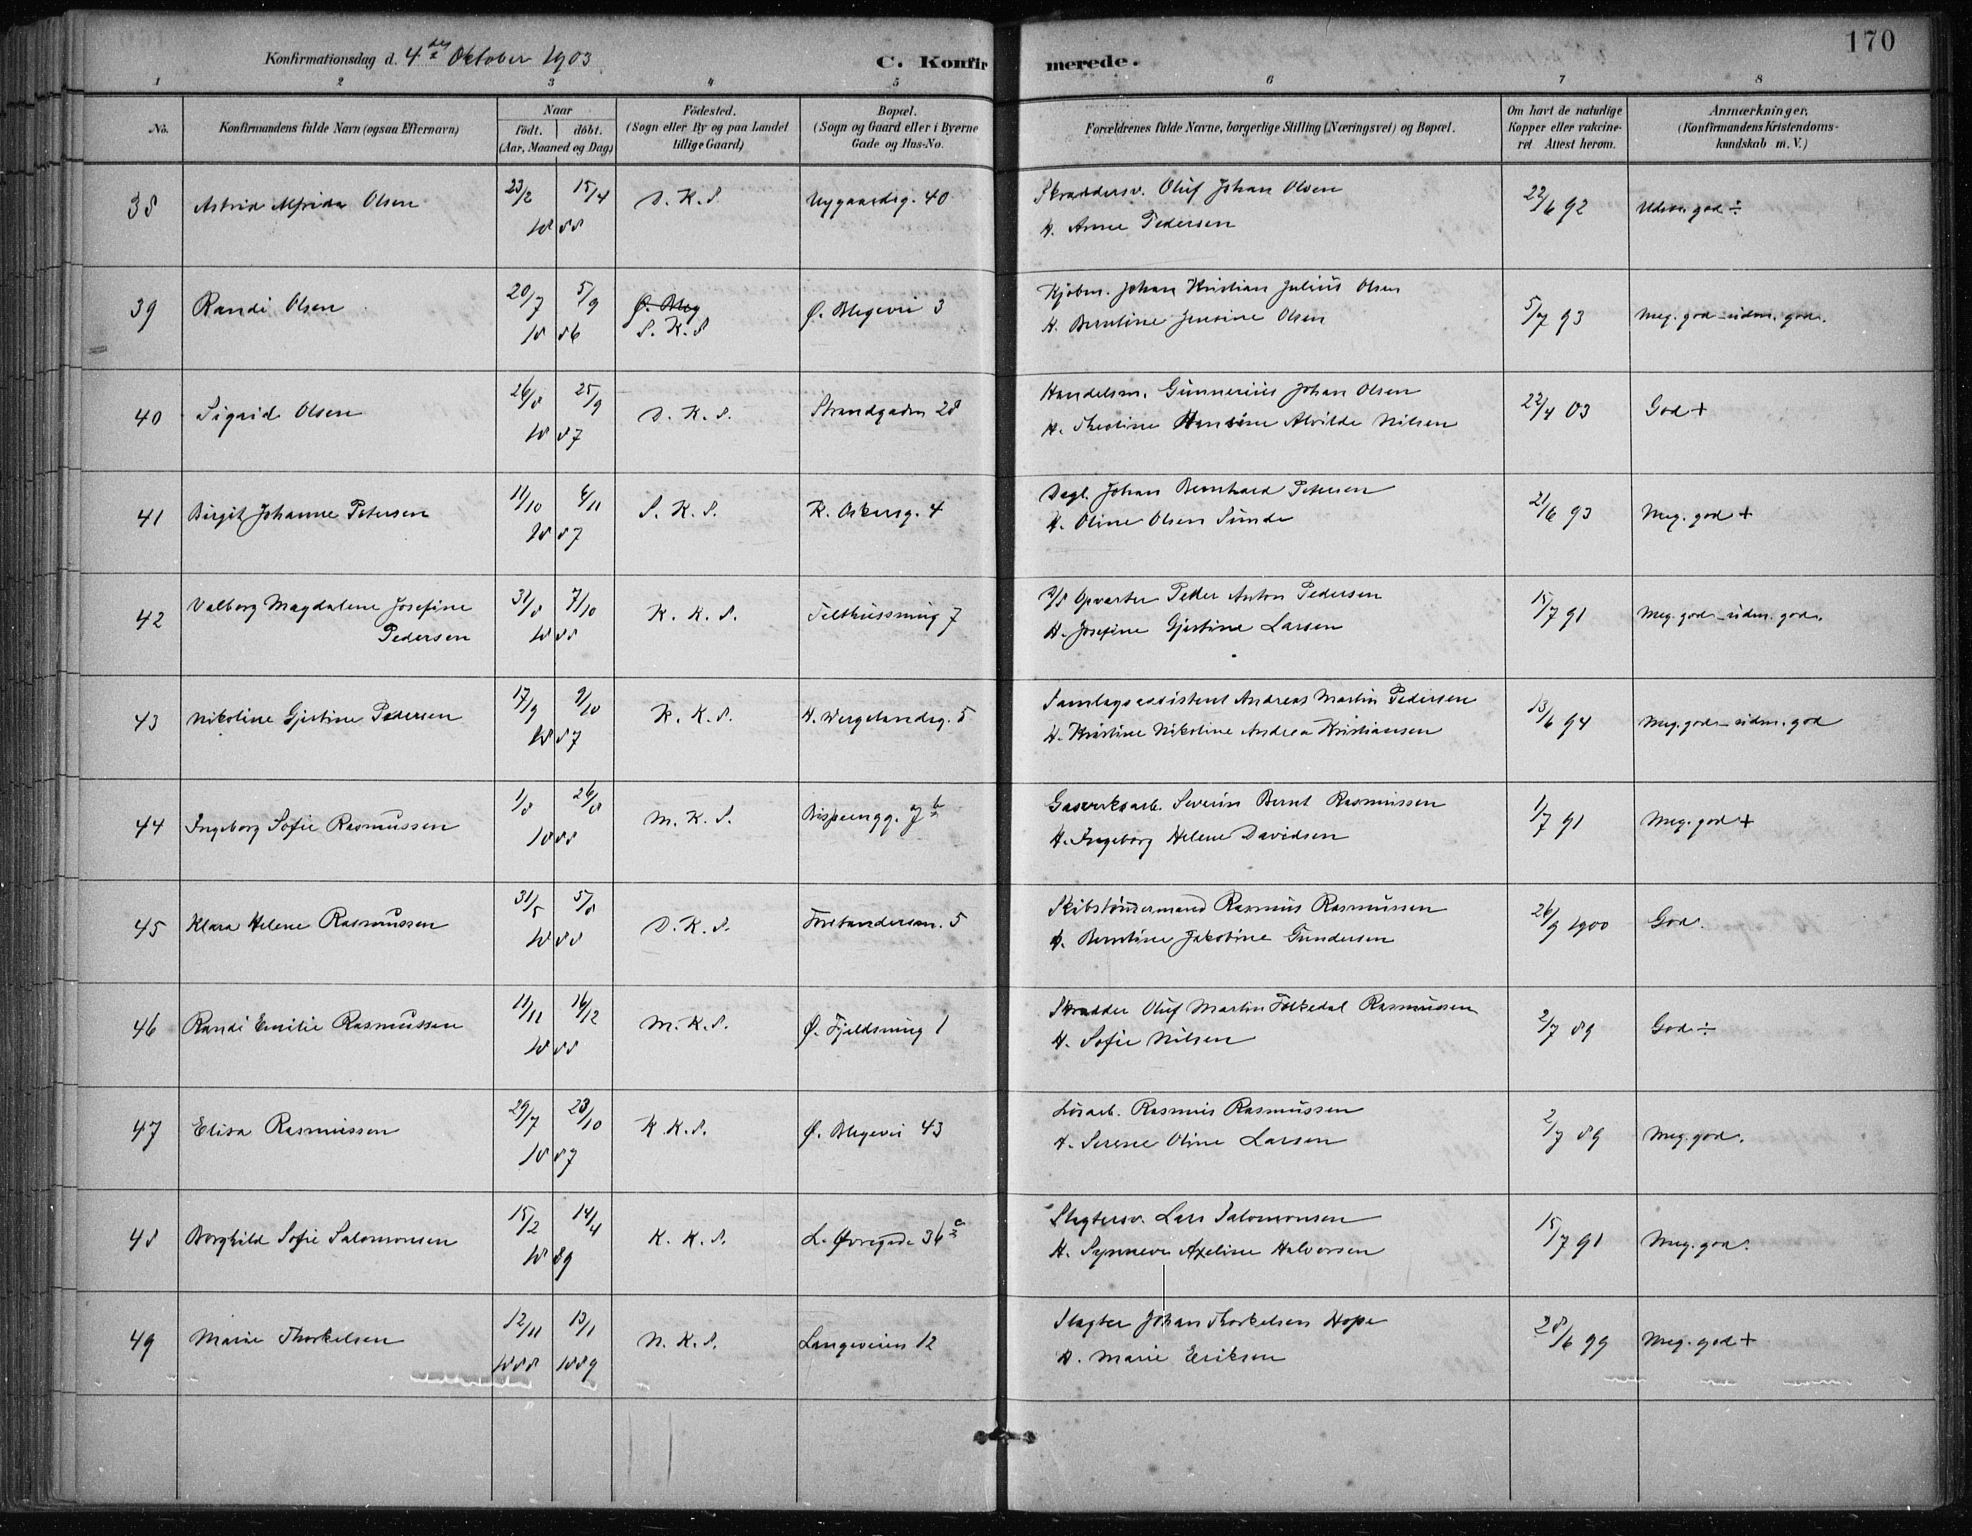 170
Konfirmationsdag d. 4des Oktober 1903
C. Konfirmerede.
1 2 3 4 5 6 7 8
No.
Konfirmandens fulde Navn (ogsaa Efternavn)
Naar
født. døbt.
(Aar, Maaned og Dag)
Fødested.
(Sogn eller By og paa Landet
tillige Gaard)
Bopæl.
(Sogn og Gaard eller i Byerne
Gade og Hus-No.
Forældrenes fulde Navne, borgerlige Stilling (Næringsvei) og Bopæl.
Om havt de naturlige
Kopper eller vakcine-
ret Attest herom.
Anmærkninger,
(Konfirmandens Kristendoms-
kundskab m. V.)
38 Astrid Alfrida Olsen 23/2 15/4 D. K. S. Nygaardsg. 40 Skræddersv. Oluf Johan Olsen 22/6 92 Udm. god ÷
1888 H. Anne Pedersen
39 Randi Olsen 20/7 5/9 Ø. Bleg Ø. Blegevei 3 Kjøbm. Johan Kristian Julius Olsen 5/7 93 Meg. god - udm. god.
1886 S. K. S H. Berntine Jensine Olsen
40 Sigrid Olsen 26/8 25/9 D. K. S. Strandgaden 28 Handelsm. Gunnerius Johan Olsen 22/4 03 God +
1887 H. Theoline Hansine Alvilde Nilsen
41 Birgit Johanne Petersen 11/10 6/11 S. K. S. K. Oskarsg. 4 Dagl. Johan Bernhard Petersen 21/6 93 Meg. god +
1887 H. Oline Olsen Sunde
42 Valborg Magdalene Josefine 31/8 7/10 K. K. S. Telthussmug 7 D/S Opvarter Peder Anton Pedersen 15/7 91 Meg. god - udm. god.
Pedersen 1888 H. Josefine Gjertine Larsen
43 Nikoline Gjertine Pedersen 17/9 9/10 K. K. S. H. Wergelandsg. 5 Samlagsassistent Andreas Martin Pedersen 13/6 94 Meg. god - udm. god
1887 H. Kristine Nikoline Andrea Kristiansen
44 Ingeborg Sofie Rasmussen 1/8 26/8 M. K. S. Bispeengg. 7b Gasverksarb. Severin Bernt Rasmussen 1/7 91 Meg. god +
1888 H. Ingeborg Helene Davidsen
45 Klara Helene Rasmussen 31/5 5/8 D. K. S. Forstandersm. 5 Skibstømmermand Rasmus Rasmussen 26/9 1900 God.
1888 H. Berntine Jakobine Gundersen
46 Randi Emilie Rasmussen 11/11 16/12 M. K. S. Ø. Fjeldsmug 1 Skrædder Oluf Martin Folkedal Rasmussen 2/7 89 God ÷
1888 H. Sofie Nilsen
47 Elisa Rasmussen 29/7 23/10 K. K. S. Ø. Blegevei 43 Løsarb. Rasmus Rasmussen 2/7 89 Meg. god.
1887 H. Serene Oline Larsen
48 Borghild Sofie Salomonsen 15/2 14/4 K. K. S. L. Øvregade 36a Slagtersv. Lars Salomonsen 15/7 91 Meg. god.
1889 H. Synneve Axeline Halvorsen
49 Marie Thorkelsen 12/11 13/1 N. K. S. Langeveien 12 Slagter Johan Thorkelsen Hope 28/6 99 Meg. god +
1888 1889 H. Marie Eriksen